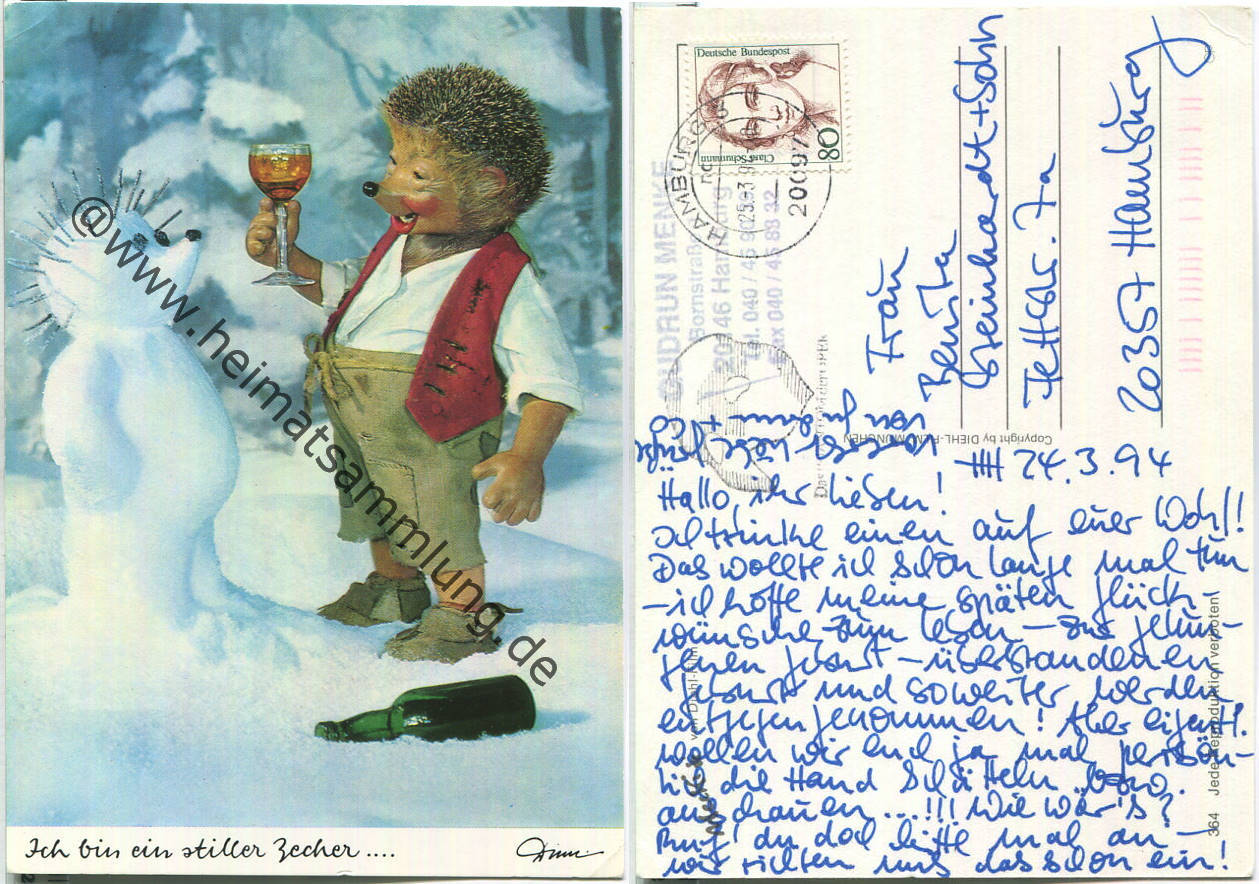 @www.heimatsammlung.de
Ich bin ein stiller Zecher....
Deutsche Bundespost
Clara Schumann
80
HAMBURG
25.-3.9
20097
GUDRUN MENKE
Bornstraße
20146 Hamburg
Tel. 040 / 45
Fax 040 / 45 88 32
Frau
Benita
Steinhardt + Sohn
Jettestr. 7a
20357 Hamburg
Copyright by DIEHL-FILM MÜNCHEN
24.3.94
Hallo, ihr Lieben!
Ich trinke einen auf euer Wohl!
Das wollte ich schon lange mal tun
– ich hoffe meine späten Glück-
wünsche zum – zur gelun-
genen Geburt – überstandenen
Geburt und so weiter werden
entgegengenommen! Aber eigentl.
wollen wir euch ja mal persön-
lich die Hand schütteln bzw.
anschauen...!!! Wie wär's?
Ruf du doch bitte mal an –
wir richten uns das schon ein!
von Gudrun +
von Diehl-Film
364 Jede Reproduktion verboten